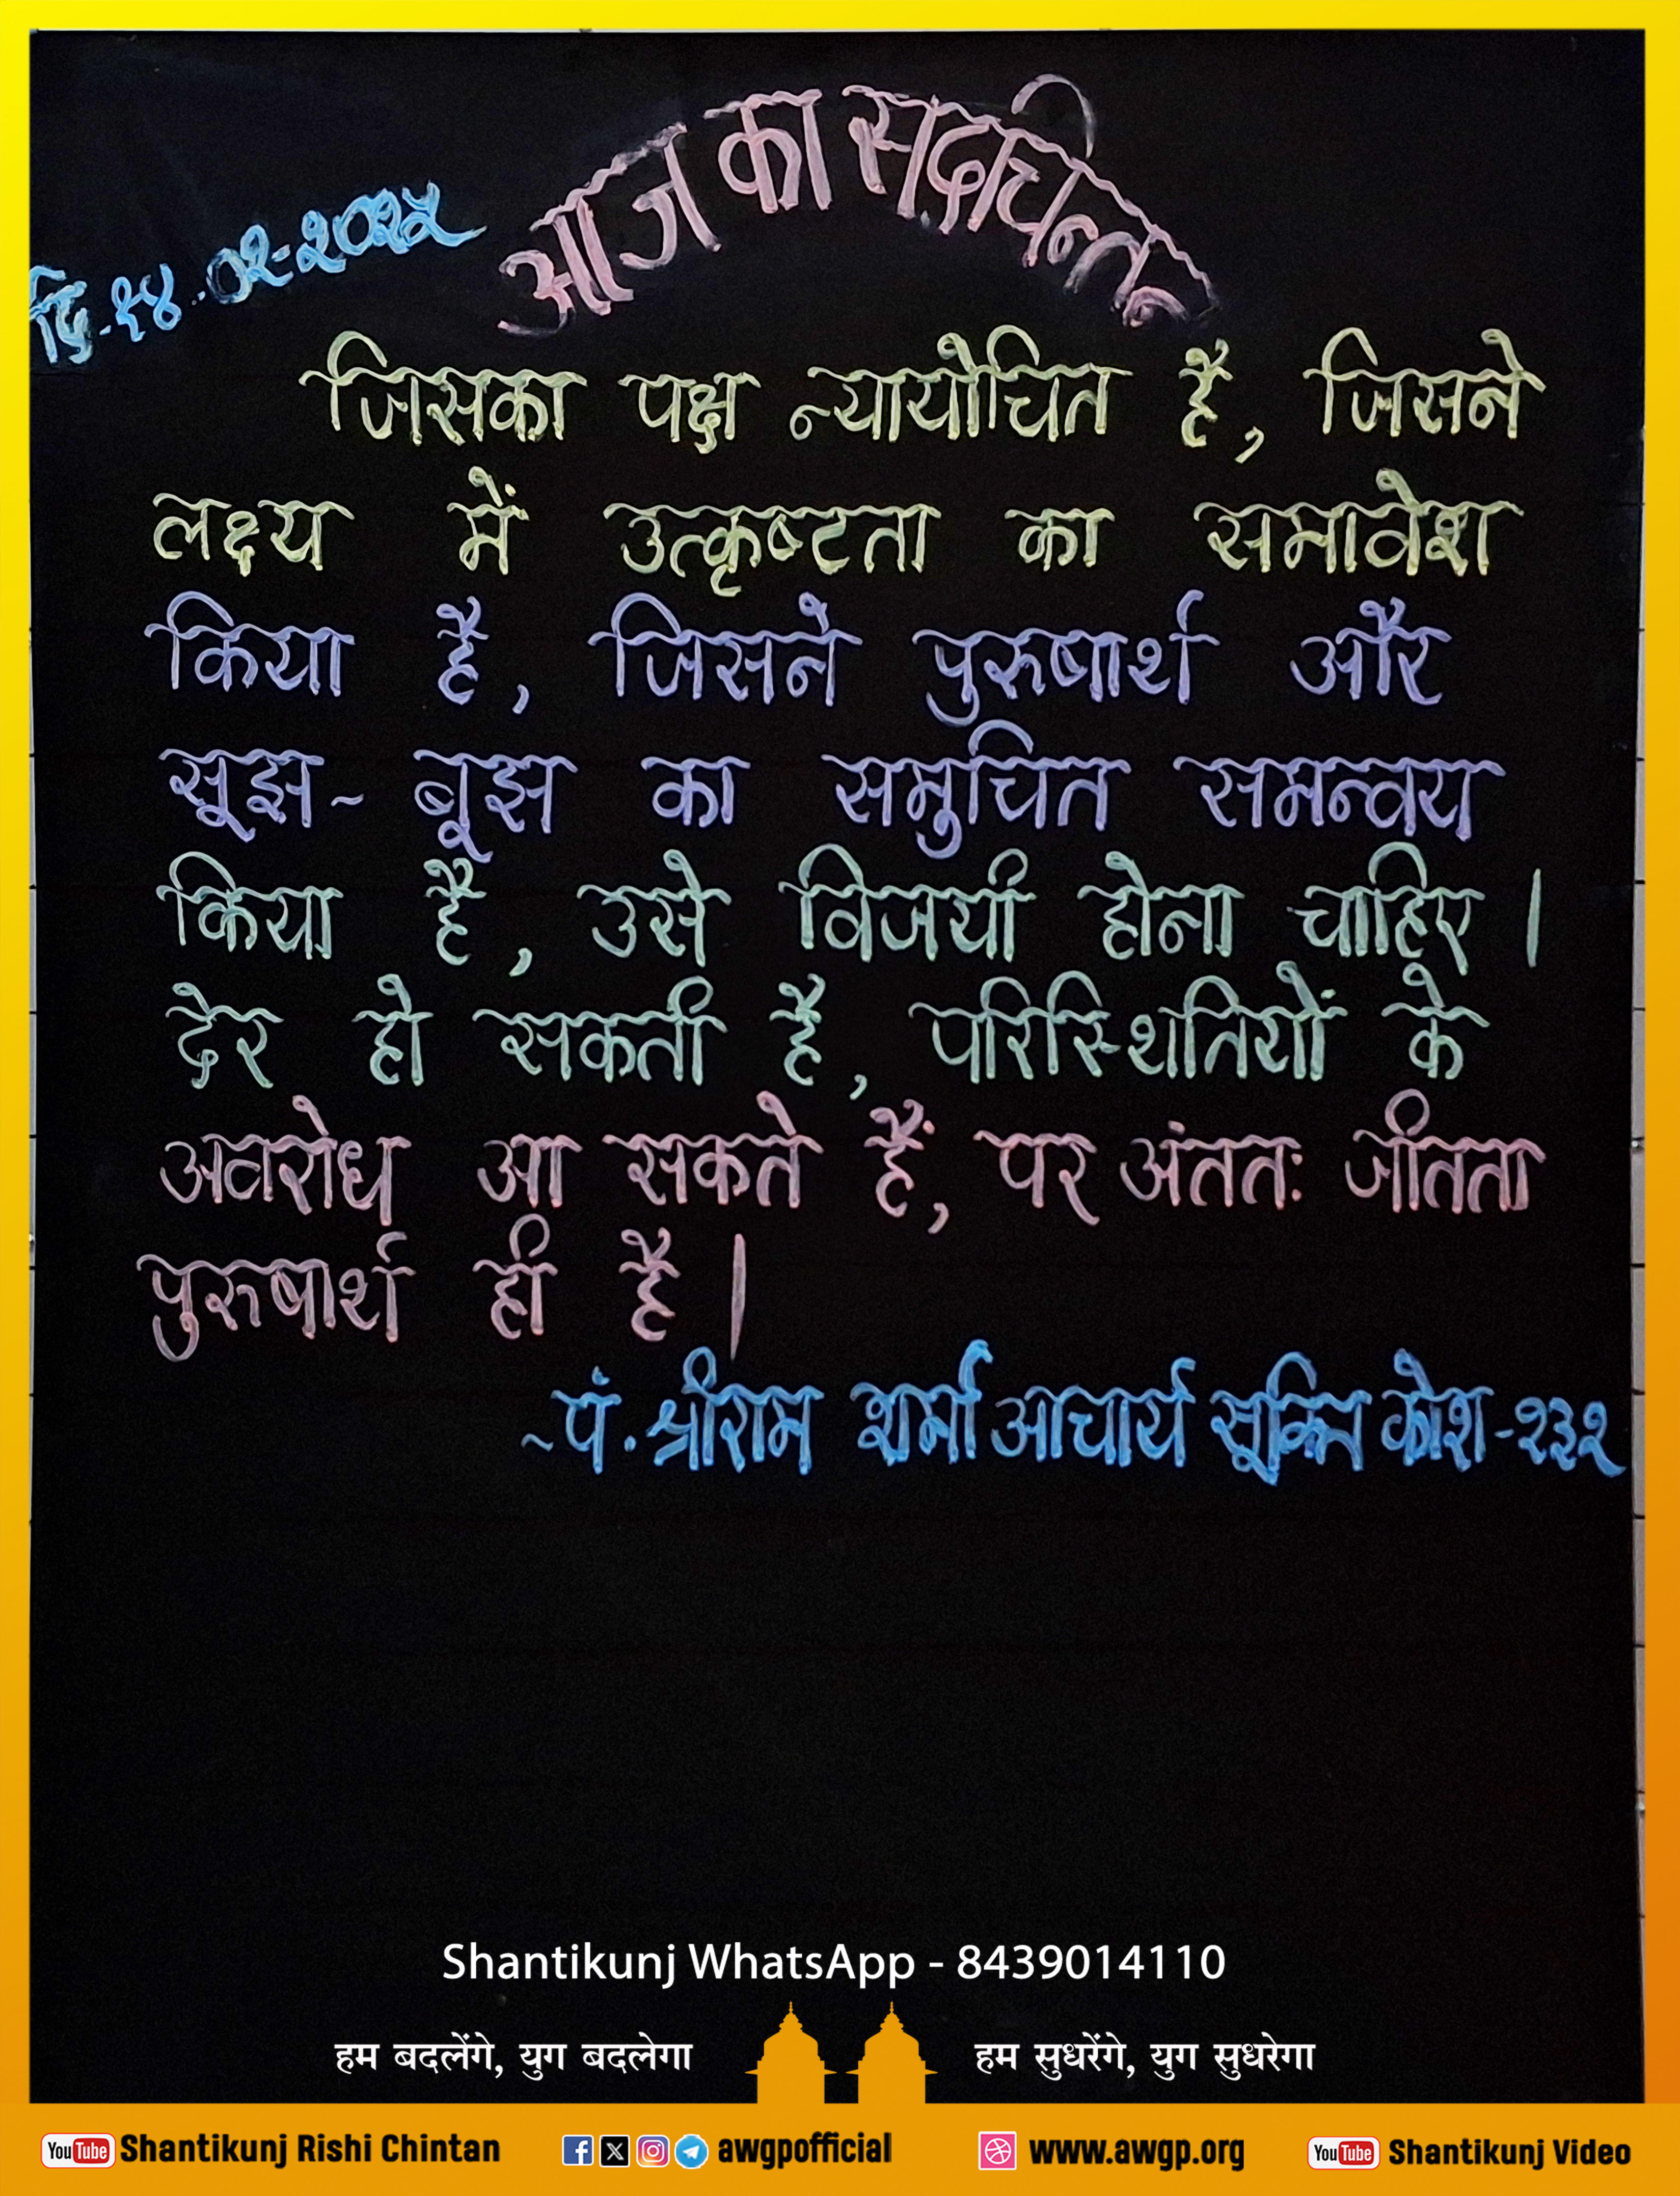 आज का सद्चिन्तन
दि-१४-०२-२०२५
जिसका पक्ष न्यायोचित है, जिसने
लक्ष्य में उत्कृष्टता का समावेश
किया है, जिसने पुरुषार्थ और
सूझ-बूझ का समुचित समन्वय
किया है, उसे विजयी होना चाहिए।
देर हो सकती है, परिस्थितियों के
अवरोध आ सकते हैं, पर अंततः जीतता
पुरुषार्थ ही है।
-पं.श्रीराम शर्मा आचार्य सूक्ति कोश-२३२
Shantikunj WhatsApp - 8439014110
हम बदलेंगे, युग बदलेगा हम सुधरेंगे, युग सुधरेगा
YouTube Shantikunj Rishi Chintan awgpofficial www.awgp.org YouTube Shantikunj Video